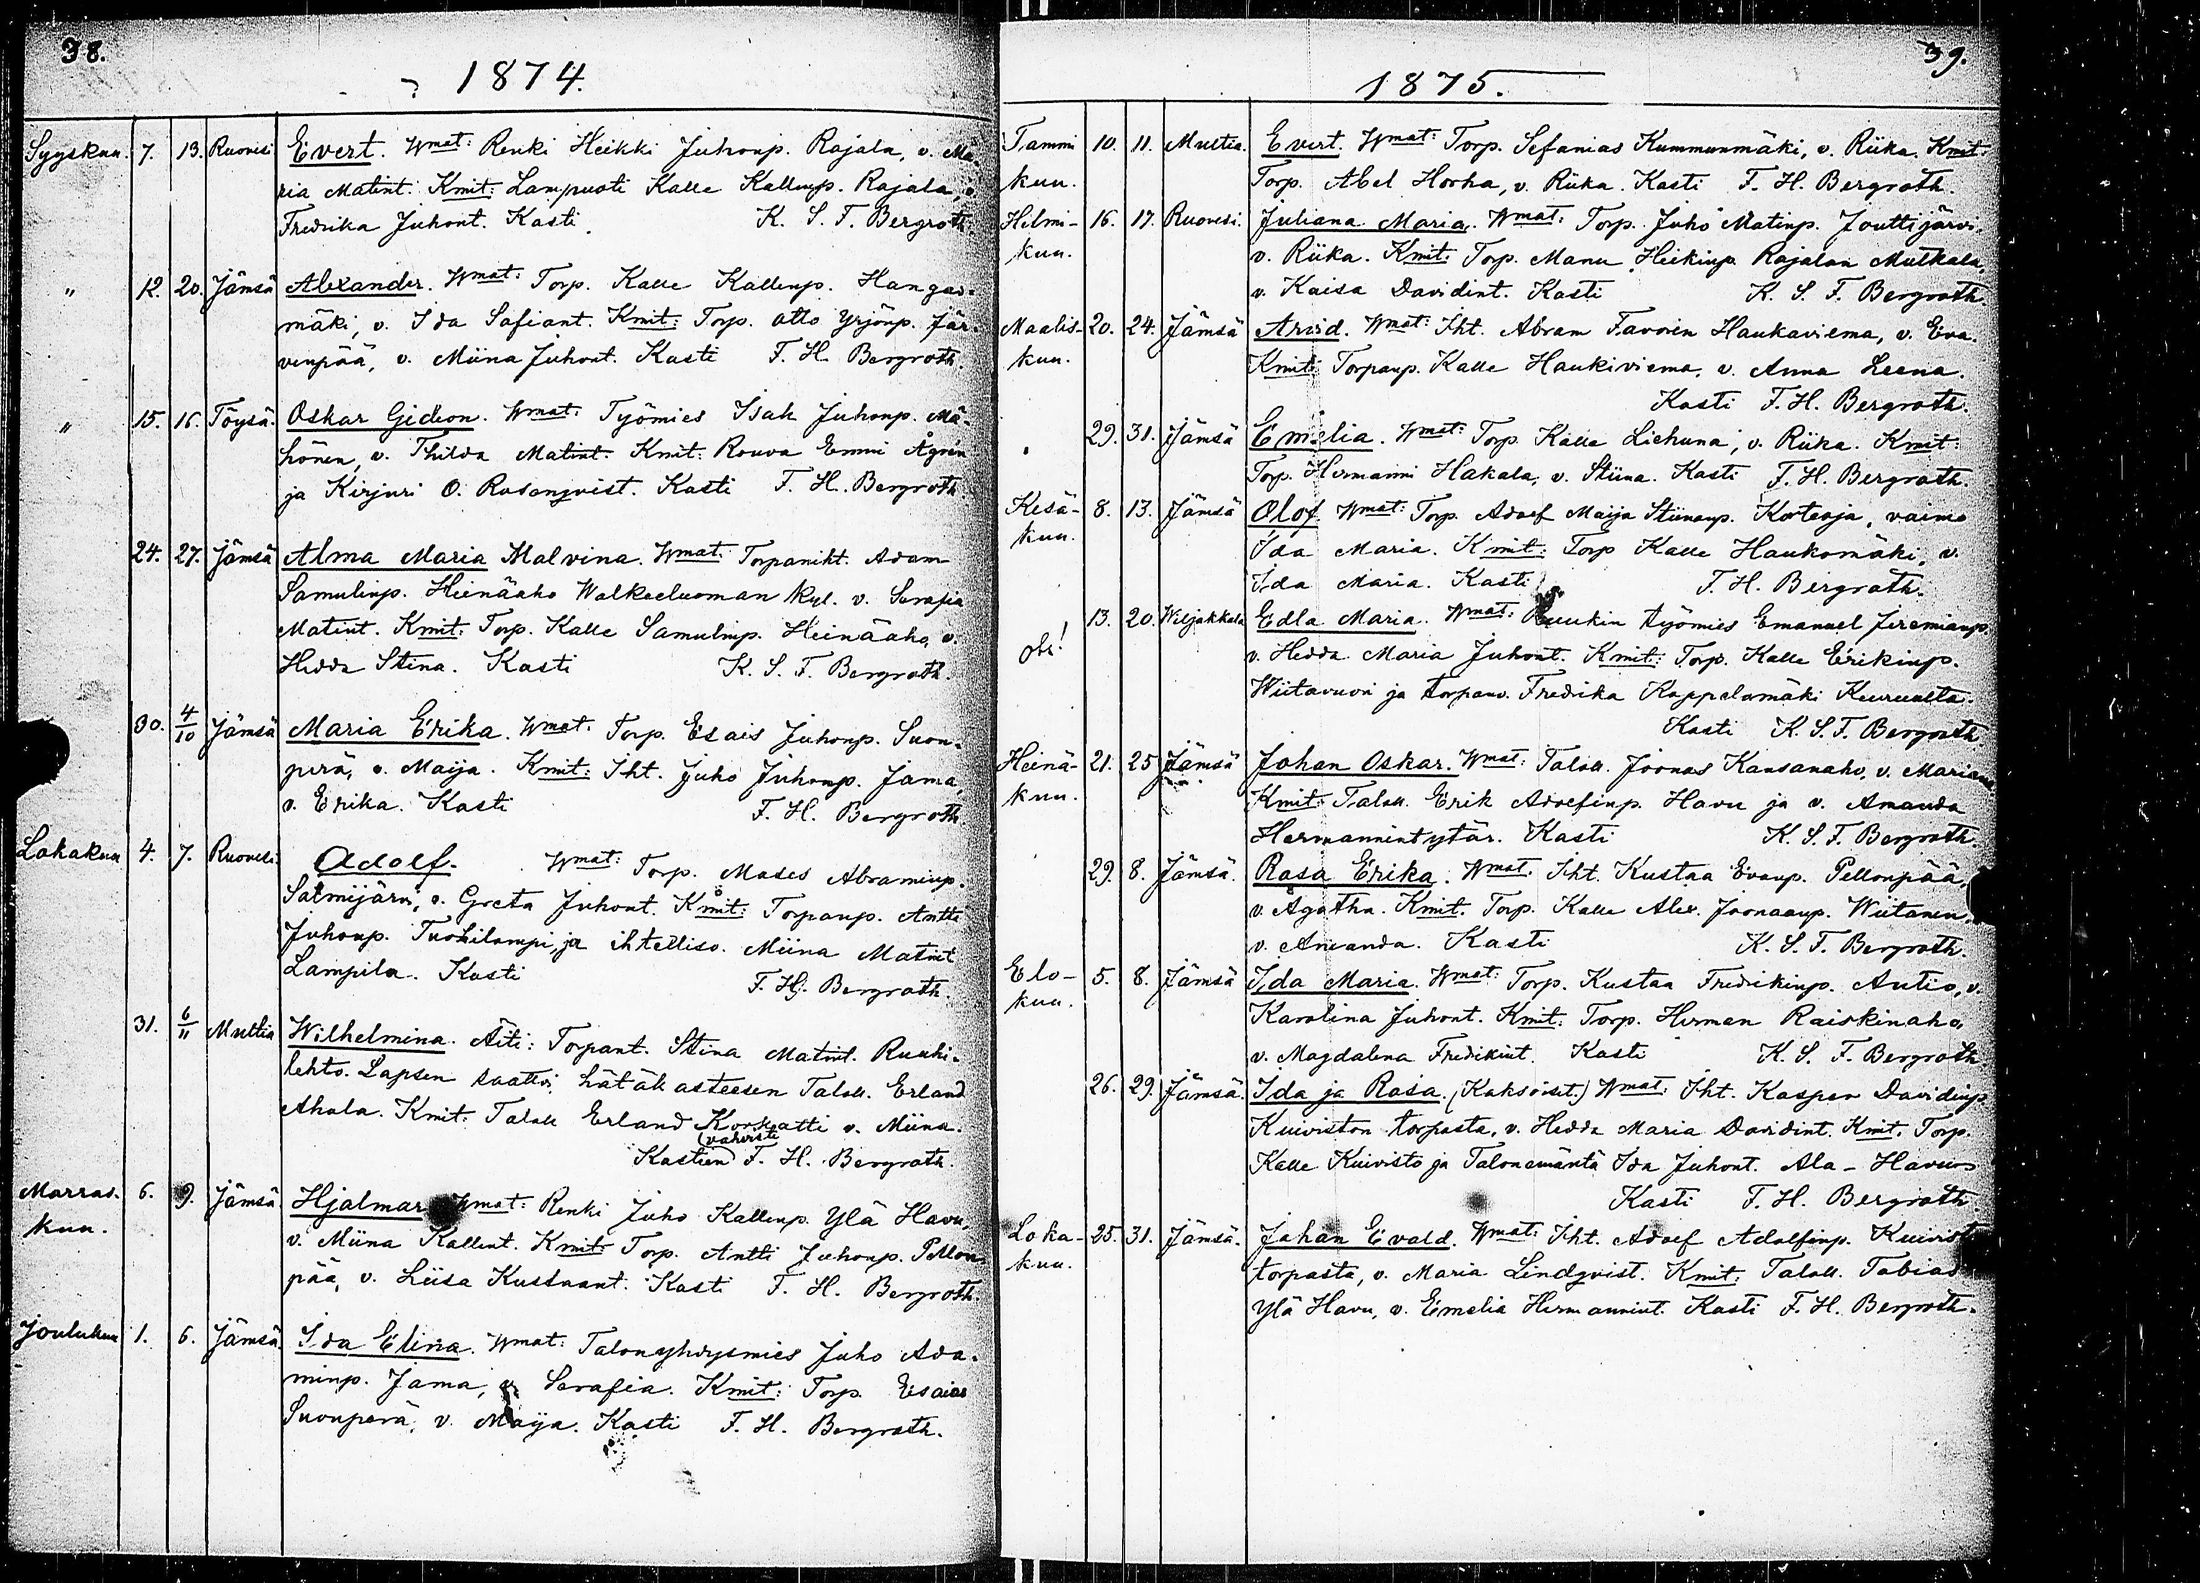 38.
1874.
Syyskuu. 7. 13. Ruovesi Evert. Wmat: Renki Heikki Juhonp. Rajala, v. Ma-
ria Matint. Kmit: Lampuoti Kalle Kallenp. Rajala, v.
Fredrika Juhont. Kasti K. S. F. Bergroth.
" 12. 20. Jämsä Alexander. Wmat: Torp. Kalle Kallenp. Hangas-
mäki, v. Ida Sofiant. Kmit: Torp. Otto Yrjönp. Jär-
venpää, v. Miina Juhont. Kasti F. H. Bergroth.
" 15. 16. Töysä. Oskar Gideon. Wmat: Työmies Isak Juhonp. Mä-
hönen, v. Thilda Matint. Kmit: Rouva Emmi Ågren
ja Kirjuri O. Rosenqvist. Kasti F. H. Bergroth
24. 27. Jämsä Alma Maria Malvina. Wmat: Torpanikt. Adam
Samulinp. Heinäaho Walkeeluoman kyl. v. Serafia
Matint. Kmit: Torp. Kalle Samulinp. Heinäaho, v.
Hedda Stina. Kasti K. S. F. Bergroth.
30. 4/10 Jämsä Maria Erika. Wmat: Torp. Esais Juhonp. Suon-
perä, v. Maija. Kmit: Iht. Juho Juhonp. Jama,
v. Erika. Kasti F. H. Bergroth.
Lokakuu 4. 7. Ruovesi. Adolf. Wmat: Torp. Moses Abraminp.
Salmijärvi, v. Greta Juhont. Kmit: Torpanp. Antti
Juhonp. Tuohilampi, ja ihtelliso. Miina Matint
Lampila. Kasti F. H. Bergroth.
31. 6/11 Multia Wilhelmina. Äiti: Torpant. Stina Matint. Ruuhi-
lehto. Lapsen saattoi hätäkasteesen Taloll. Erland
Ahola. Kmit: Taloll Erland Korkeatti v. Miina.
(vahvisti
Kasteen) F. H. Bergroth.
Marras- 6. 9. Jämsä Hjalmar Wmat: Renki Juho Kallenp. Ylä Havu,
kuu. v. Miina Kallent. Kmit: Torp. Antti Juhonp. Pellon-
pää, v. Liisa Kustaant. Kasti F. H. Bergroth.
Joulukuu 1. 6. Jämsä. Ida Elina. Wmat: Talonyhdysmies Juho Ada-
minp. Jama, v. Serafia. Kmit: Torp. Esaias
Suonperä, v. Maija. Kasti F. H. Bergroth.
39.
1875.
Tammi 10. 11. Multia. Evert. Wmat: Torp. Sefanias Kummunmäki, v. Riika. Kmit:
kuu. Torp. Abel Horha, v. Riika. Kasti F. H. Bergroth.
Helmi- 16. 17. Ruovesi. Juliana Maria. Wmat: Torp. Juho Matinp. Jouttijärvi,
kuu. v. Riika. Kmit: Torp. Manu Heikinp. Rajalan Mutkala,
v. Kaisa Davidint. Kasti K. S. F. Bergroth.
Maalis- 20. 24. Jämsä Arvid. Wmat: Iht. Abram Favorin Haukaviema, v. Eva.
kuu. Kmit: Torpanp. Kalle Haukiviema, v. Anna Leena.
Kasti F. H. Bergroth.
29. 31. Jämsä Emelia. Wmat: Torp. Kalle Liehuna, v. Riika. Kmit:
Torp. Hermanni Hakala, v. Stiina. Kasti F. H. Bergroth.
Kesä- 8. 13. Jämsä Olof. Wmat: Torp. Adolf Maija Stiinanp. Korteoja, vaimo
kuu. Ida Maria. Kmit: Torp Kalle Haukomäki, v.
Ida Maria. Kasti F. H. Bergroth.
13. 20. Wiljakkala Edla Maria. Wmat: Ruukin työmies Emanuel Jeremianp.
v. Hedda Maria Juhont. Kmit: Torp. Kalle Erikinp.
Wiitavuori ja torpanv. Fredrika Kappelamäki Keuruulta.
Kasti K. S. F. Bergroth
Heinä- 21. 25 Jämsä Johan Oskar. Wmat: Taloll. Joonas Kansanaho, v. Mariana
kuu. Kmit: Taloll. Erik Adolfinp. Havu ja v. Amanda
Hermannintytär. Kasti K. S. F. Bergroth.
29. 8. Jämsä. Rosa Erika. Wmat. Iht. Kustaa Evanp. Pellonpää,
v. Agatha. Kmit. Torp. Kalle Alex. Joonaanp. Wiitanen,
v. Amanda. Kasti K. S. F. Bergroth.
Elo- 5. 8. Jämsä Ida Maria. Wmat: Torp. Kustaa Fredrikinp. Autio, v.
kuu. Karolina Juhont. Kmit: Torp. Herman Raiskinaho,
v. Magdalena Fredikint. Kasti K. S. F. Bergroth
26. 29. Jämsä. Ida ja Rosa. (Kaksoiset.) Wmat: Iht. Kasper Davidinp
Kuiviston torpasta, v. Hedda Maria Davidint. Kmit. Torp.
Kalle Kuivisto ja Talonemäntä Ida Juhont. Ala-Havu
Kasti F. H. Bergroth
Loka- 25. 31. Jämsä. Johan Evald. Wmat: Iht. Adolf Adolfinp. Kuivist
kuu. torpasta, v. Maria Lindqvist. Kmit: Taloll. Tobias
Ylä Havu, v. Emelia Hermannint. Kasti F. H. Bergroth.